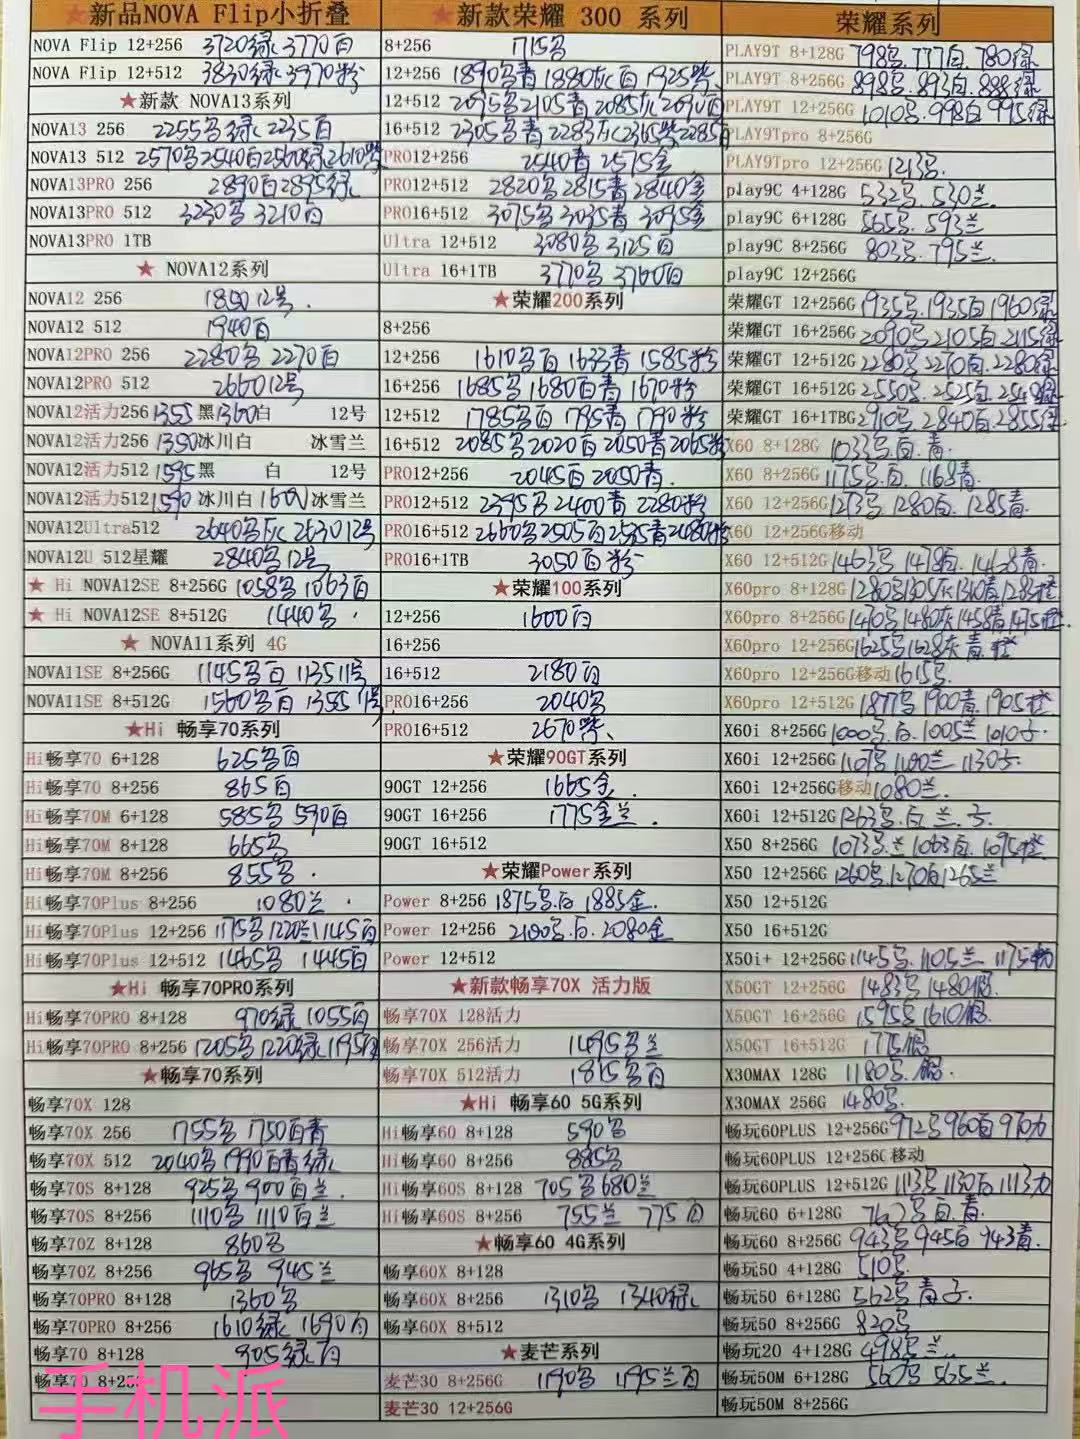 ★新品NOVA Flip小折叠
NOVA Flip 12+256 3720绿 3770白
NOVA Flip 12+512 3830绿 3970粉
★新款 NOVA13系列
NOVA13 256 2255 绿 2235白
NOVA13 512 2570 2540白 2560绿 2610紫
NOVA13PRO 256 2890白 2895绿
NOVA13PRO 512 3230 3210白
NOVA13PRO 1TB
★ NOVA12系列
NOVA12 256 1850 12号
NOVA12 512 1940白
NOVA12PRO 256 2280 2270白
NOVA12PRO 512 2660 12号
NOVA12活力256 1355黑 1360白 12号
NOVA12活力256 1350冰川白 冰雪兰
NOVA12活力512 1595黑 白 12号
NOVA12活力512 1590冰川白 1600冰雪兰
NOVA12Ultra512 2640 灰 2630 12号
NOVA12U 512星耀 2840 12号
★ Hi NOVA12SE 8+256G 1058 1063白
★ Hi NOVA12SE 8+512G 1440
★ NOVA11系列 4G
NOVA11SE 8+256G 1145 白 1135 11号
NOVA11SE 8+512G 1560 白 1355 11号
★Hi 畅享70系列
Hi畅享70 6+128 625 白
Hi畅享70 8+256 865白
Hi畅享70M 6+128 585 590白
Hi畅享70M 8+128 665
Hi畅享70M 8+256 855
Hi畅享70Plus 8+256 1080兰
Hi畅享70Plus 12+256 1175 1220兰 1145白
Hi畅享70Plus 12+512 1465 1445白
★Hi 畅享70PRO系列
Hi畅享70PRO 8+128 970绿 1055白
Hi畅享70PRO 8+256 1205 1220绿 1195白
★畅享70系列
畅享70X 128
畅享70X 256 1755 1750白青
畅享70X 512 2040 1990白青绿
畅享70S 8+128 925 900白兰
畅享70S 8+256 1110 1110白兰
畅享70Z 8+128 860
畅享70Z 8+256 965 945兰
畅享70PRO 8+128 1360
畅享70PRO 8+256 1610绿 1690白
畅享70 8+128 905绿白
畅享70 8+256
★新款荣耀 300 系列
8+256 1715
12+256 1890 青 1880灰白 1925紫
12+512 2095 2105青 2085灰 2090白
16+512 2305 青 2283灰 2365紫 2285白
PRO12+256 2540青 2575金
PRO12+512 2820 2815青 2840金
PRO16+512 3075 3035青 3095金
Ultra 12+512 3080 3125白
Ultra 16+1TB 3770 3760白
★荣耀200系列
8+256
12+256 1610 白 1633青 1585粉
16+256 1685 1680白青 1670粉
12+512 1785 白 1795青 1790粉
16+512 2085 2020白 2050青 2065粉
PRO12+256 2045白 2050青
PRO12+512 2395 2400青 2280粉
PRO16+512 2660 2505白 2525青 2480粉
PRO16+1TB 3050白粉
★荣耀100系列
12+256 1600白
16+256
16+512 2180白
PRO16+256 2040
PRO16+512 2670紫
★荣耀90GT系列
90GT 12+256 1665金
90GT 16+256 1775金兰
90GT 16+512
★荣耀Power系列
Power 8+256 1875 白 1885金
Power 12+256 2100 白 2080金
Power 12+512
★新款畅享70X 活力版
畅享70X 128活力
畅享70X 256活力 1495 兰
畅享70X 512活力 1815 白
★Hi 畅享60 5G系列
Hi畅享60 8+128 590
Hi畅享60 8+256 885
Hi畅享60S 8+128 705 680兰
Hi畅享60S 8+256 755兰 775白
★畅享60 4G系列
畅享60X 8+128
畅享60X 8+256 1310 1340绿
畅享60X 8+512
★麦芒系列
麦芒30 8+256G 1190 1195兰白
麦芒30 12+256G
荣耀系列
PLAY9T 8+128G 798 777白 780绿
PLAY9T 8+256G 898 893白 888绿
PLAY9T 12+256G 1010 998白 995绿
PLAY9Tpro 8+256G
PLAY9Tpro 12+256G 1213
play9C 4+128G 532 530兰
play9C 6+128G 565 593兰
play9C 8+256G 803 795兰
play9C 12+256G
荣耀GT 12+256G 1935 1935白 1960绿
荣耀GT 16+256G 2090 2105白 2115绿
荣耀GT 12+512G 2280 2270白 2280绿
荣耀GT 16+512G 2550 2525白 2540绿
荣耀GT 16+1TBG 2910 2840白 2855绿
X60 8+128G 1033 白 青
X60 8+256G 1175 白 1168青
X60 12+256G 1273 1280白 1285青
X60 12+256G移动
X60 12+512G 1463 1478白 1468青
X60pro 8+128G 1280 1305灰 1310青 1285橙
X60pro 8+256G 1470 1480灰 1458青 1475橙
X60pro 12+256G 1625 1628灰 青 橙
X60pro 12+256G移动 1615
X60pro 12+512G 1877 1900青 1905橙
X60i 8+256G 1000 白 1005兰 1010
X60i 12+256G 1107 1100兰 1130
X60i 12+256G移动 1080兰
X60i 12+512G 1263 白 兰
X50 8+256G 1073 兰 1063白 1095橙
X50 12+256G 1260 1270白 1265兰
X50 12+512G
X50 16+512G
X50i+ 12+256G 1145 1105兰 1175粉
X50GT 12+256G 1483 1480银
X50GT 16+256G 1595 1610银
X50GT 16+512G 1775银
X30MAX 128G 1180 银
X30MAX 256G 1480
畅玩60PLUS 12+256G 972 960白 970
畅玩60PLUS 12+256G移动
畅玩60PLUS 12+512G 1113 1130白 1113
畅玩60 6+128G 白 青
畅玩60 8+256G 943 945白 943青
畅玩50 4+128G 510
畅玩50 6+128G 562 青
畅玩50 8+256G 820
畅玩20 4+128G 498 兰
畅玩50M 6+128G 560 565兰
畅玩50M 8+256G
手机派